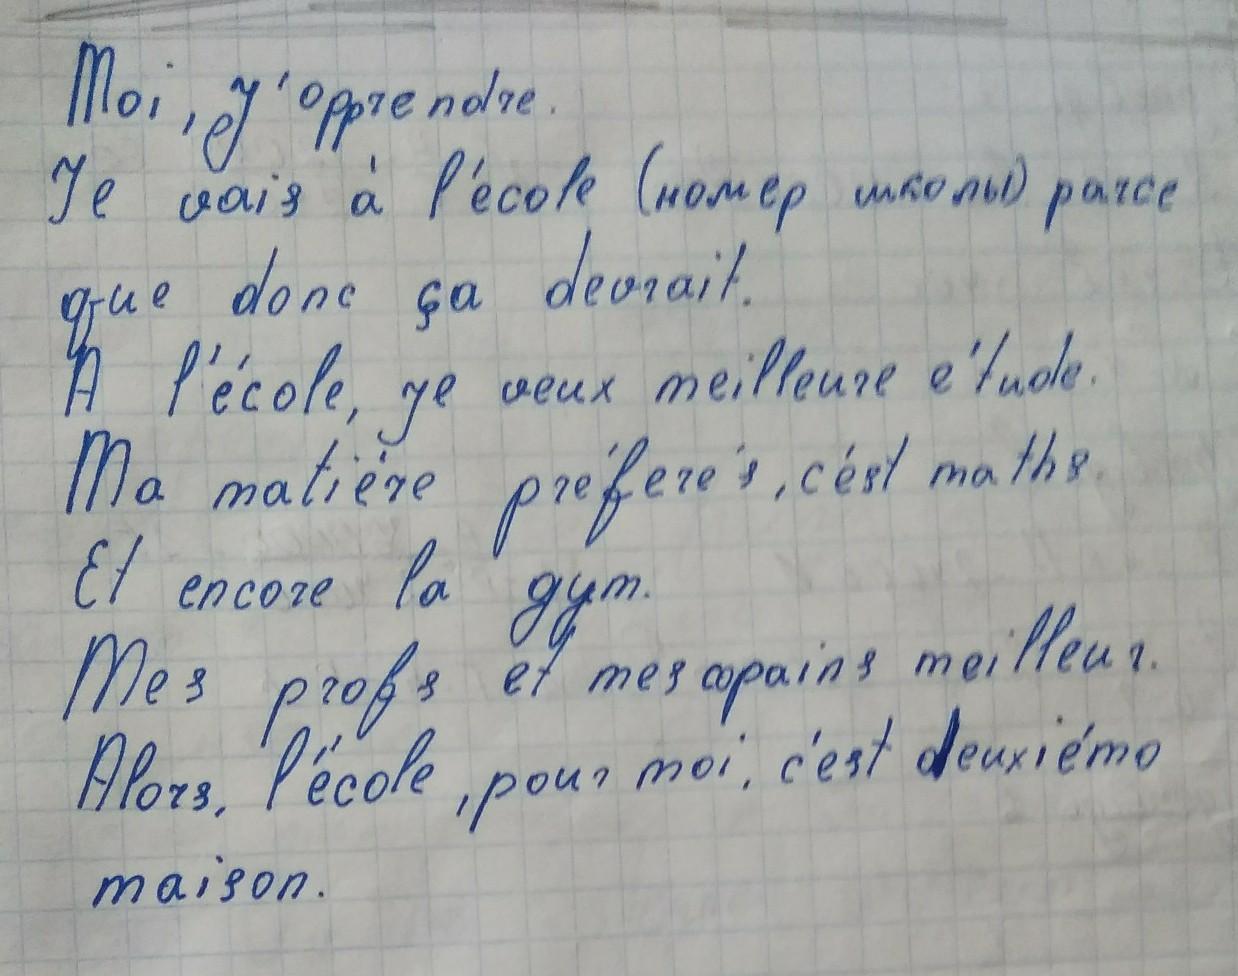 Moi, j'opprendre.
Je vais à l'école (номер школы) parce
que donc ça devrait.
A l'école, je veux meilleure étude.
Ma matiére préferés, c'ést maths.
Et encore la gym.
Mes profs et mes copains meilleur.
Alors, l'école, pour moi, c'est deuxiémo
maison.